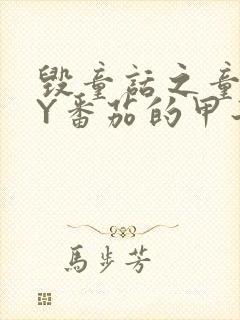 毁童话之童
Y番茄的甲
馬步芳